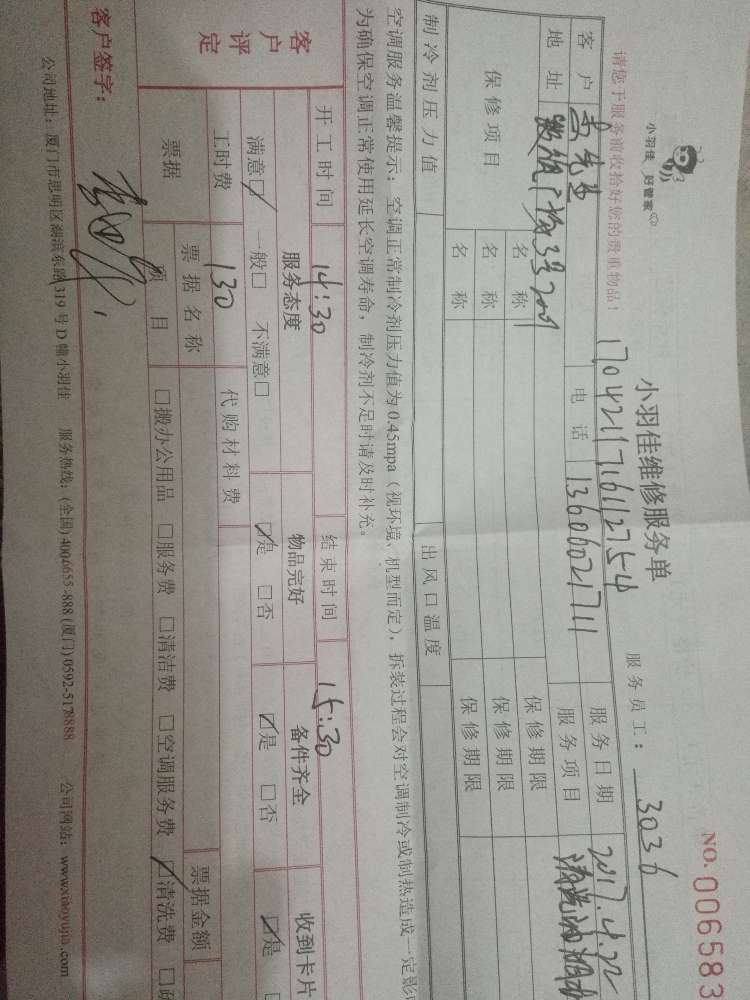 小羽佳 好管家
小羽佳维修服务单
NO. 006583
请您于服务前收拾好您的贵重物品!
17042117161112754
服务员工: 3036
客户 先生 电话 13606021711 服务日期 2017.4.22
地址 广场3号2001 服务项目 清洗油烟机
保修项目 名称 保修期限
名称 保修期限
名称 保修期限
制冷剂压力值 出风口温度
空调服务温馨提示:空调正常制冷剂压力值为0.45mpa(视环境、机型而定),拆装过程会对空调制冷或制热造成一定影
为确保空调正常使用延长空调寿命,制冷剂不足时请及时补充。
开工时间 14:30 结束时间 15:30
客户评定 服务态度 物品完好 备件齐全 收到卡片
满意☑ 一般□ 不满意□ ☑是 □否 ☑是 □否 ☑是
工时费 130 代购材料费
票据 票据名称 票据金额
项目 □搬办公用品 □服务费 □清洁费 □空调服务费 ☑清洗费
客户签字:
公司地址:厦门市思明区湖滨东路319号D幢小羽佳 服务热线:(全国)4006655-888(厦门)0592-5178888 公司网站:www.xiaoyujia.com